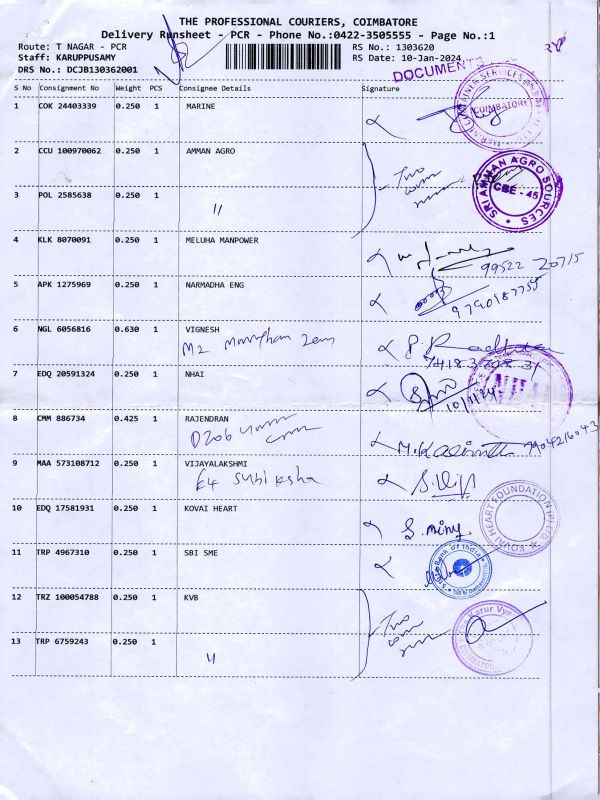 THE PROFESSIONAL COURIERS, COIMBATORE
Delivery Runsheet - PCR - Phone No.:0422-3505555 - Page No.:1
Route: T NAGAR - PCR RS No.: 1303620
Staff: KARUPPUSAMY RS Date: 10-Jan-2024
DRS No.: DCJB130362001 DOCUMENTS
S No Consignment No Weight PCS Consignee Details Signature
1 COK 24403339 0.250 1 MARINE COIMBATORE
2 CCU 100970062 0.250 1 AMMAN AGRO Two
SRI AMMAN AGRO SOURCES CBE - 45
3 POL 2585638 0.250 1 "
4 KLK 8070091 0.250 1 MELUHA MANPOWER
99522 20715
5 APK 1275969 0.250 1 NARMADHA ENG
9790987755
6 NGL 6056816 0.630 1 VIGNESH
M2
7 EDQ 20591324 0.250 1 NHAI
10/1/24
8 CMM 886734 0.425 1 RAJENDRAN
7904216043
9 MAA 573108712 0.250 1 VIJAYALAKSHMI
E4 Subiksha
10 EDQ 17581931 0.250 1 KOVAI HEART
KOVAI HEART FOUNDATION (P) LTD.
11 TRP 4967310 0.250 1 SBI SME
State Bank of India
12 TRZ 100054788 0.250 1 KVB Two
The Karur Vysya
COIMBATORE
13 TRP 6759243 0.250 1 "